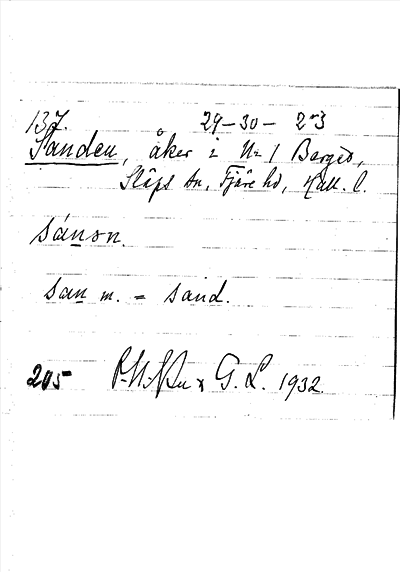 137. 29-30- 2-3
Sanden, åker i Nr 1 Bergö,
Släps sn, Fjäre hd, Hall. l.
sánən.
san m. = sand.
205 G. L. 1932.